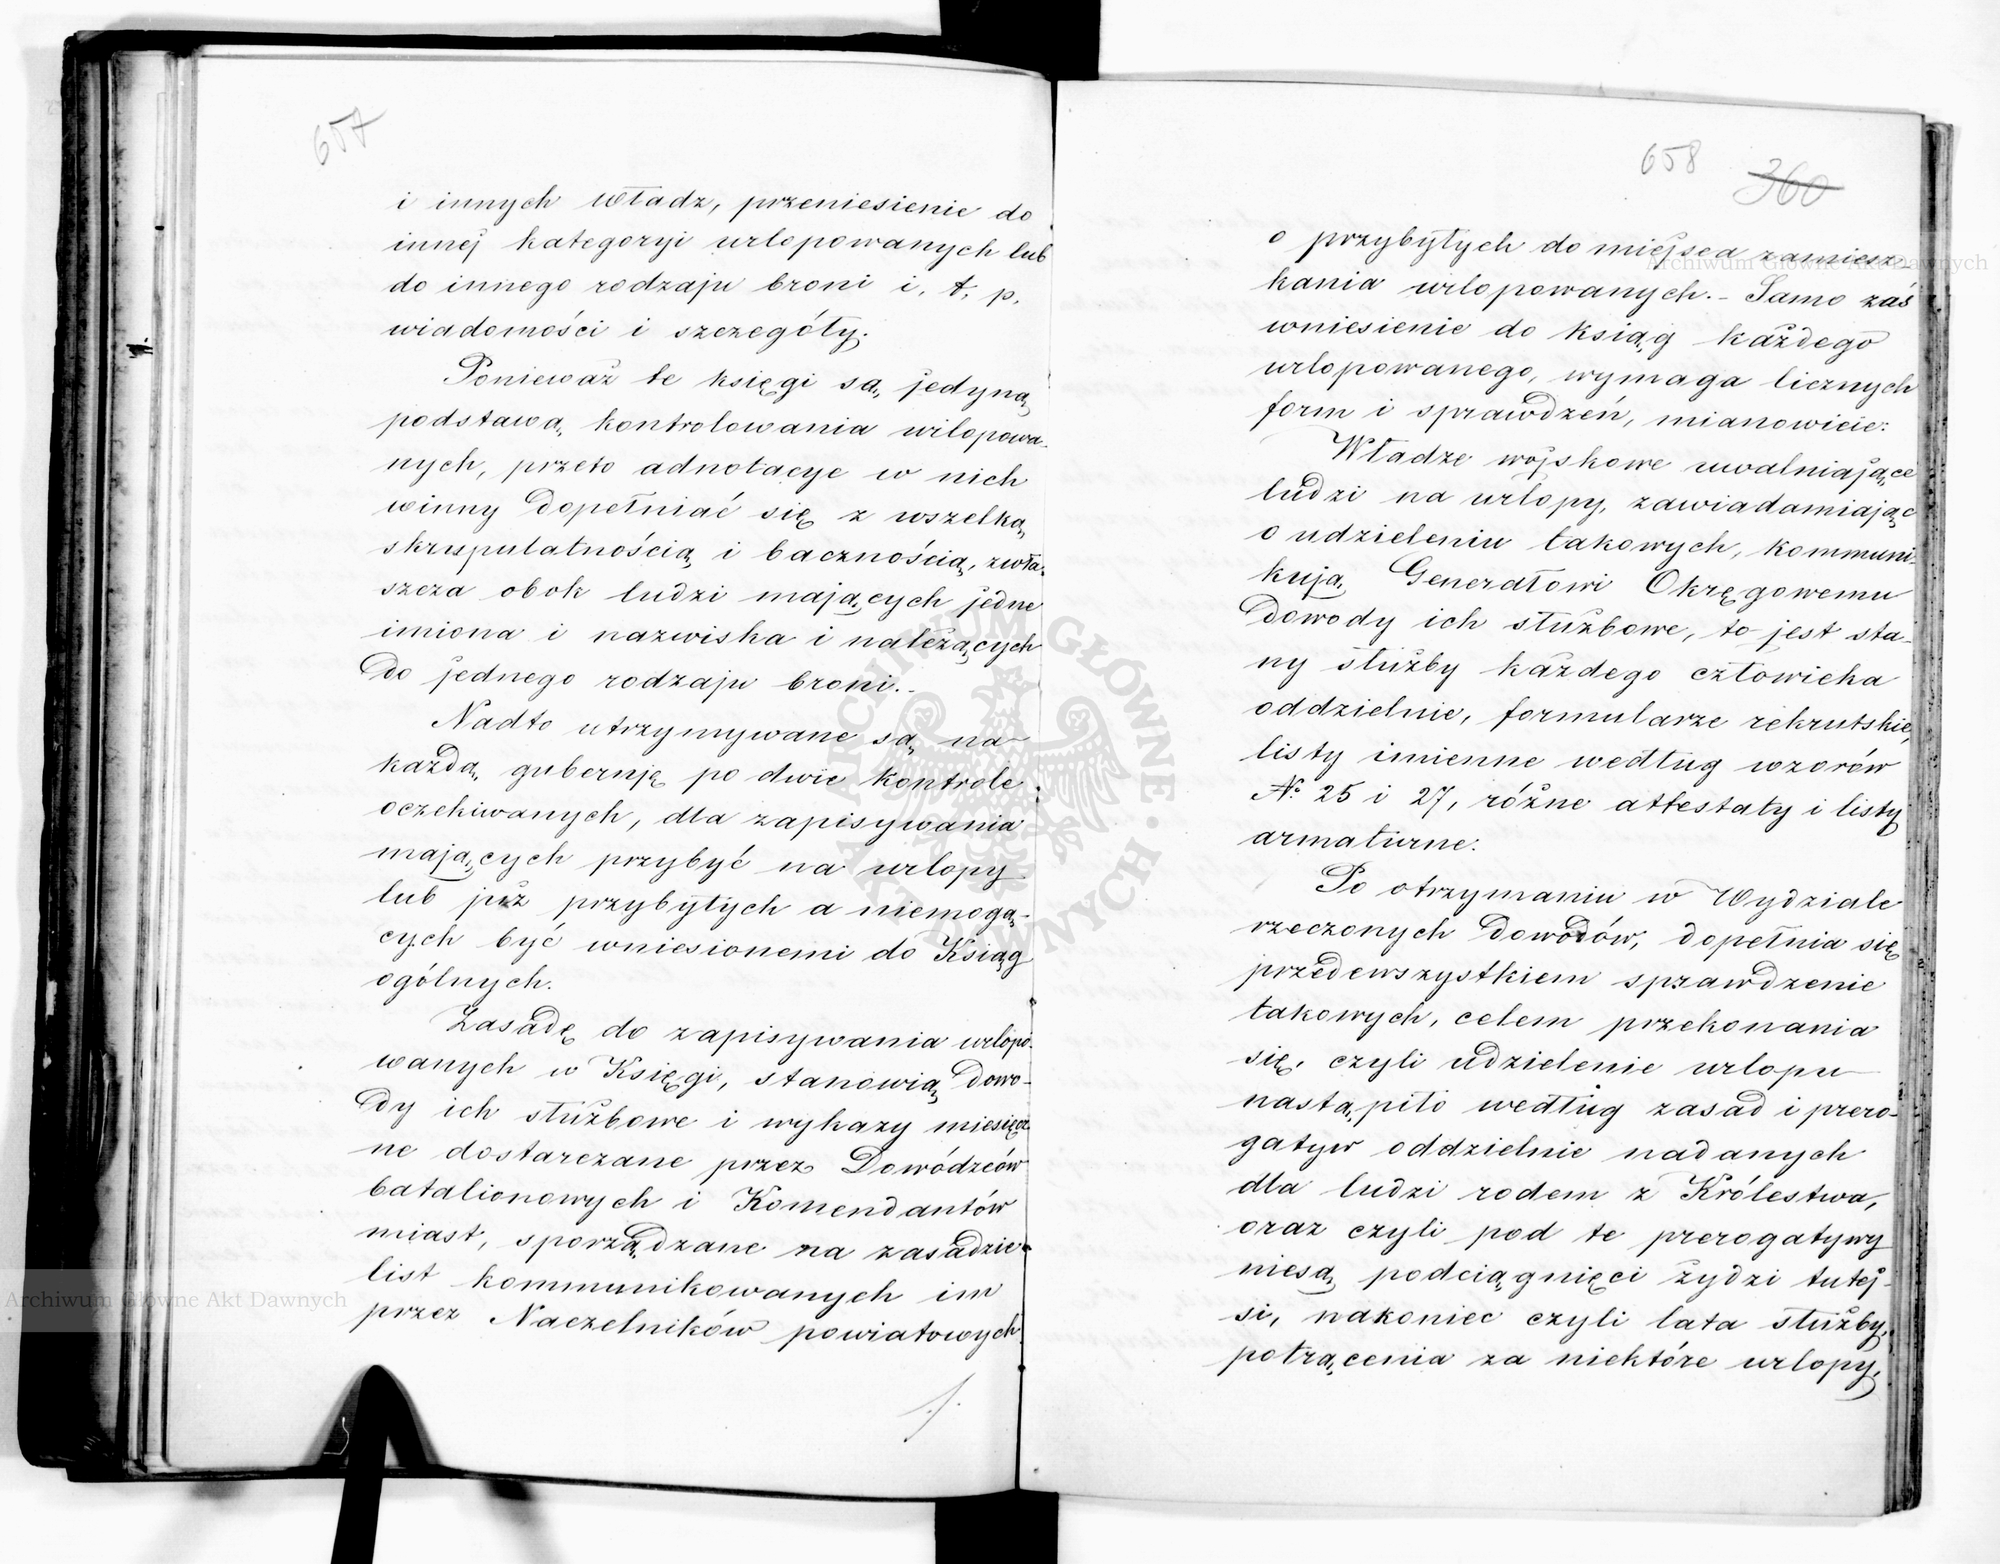 657
i innych władz, przeniesienie do
innej kategoryi urlopowanych lub
do innego rodzaju broni i. t. p.
wiadomości i szczegóły.
Ponieważ te księgi są jedyną
podstawą kontrolowania urlopowa-
nych, przeto adnotacye w nich
winny dopełniać się z wszelką
skrupulatnością i bacznością, zwła-
szcza obok ludzi mających jedne
imiona i nazwiska i należących
do jednego rodzaju broni.-
Nadto utrzymywane są na
każdą gubernję po dwie kontrole
oczekiwanych, dla zapisywania
mających przybyć na urlopy
lub już przybyłych a niemogą-
cych być wniesionemi do Ksiąg
ogólnych.
Zasadę do zapisywania urlopo-
wanych w Księgi, stanowią Dowo-
dy ich służbowe i wykazy miesięcz
ne dostarczane przez Dowódzców
batalionowych i Komendantów
miast, sporządzane na zasadzie
list kommunikowanych im
przez Naczelników powiatowych
./.
658 360
o przybyłych do miejsca zamiesz-
kania urlopowanych.- Samo zaś
wniesienie do ksiąg każdego
urlopowanego, wymaga licznych
form i sprawdzeń, mianowicie:
Władze wojskowe uwalniające
ludzi na urlopy, zawiadamiając
o udzieleniu takowych, kommuni-
kują Generałowi Okręgowemu
Dowody ich służbowe, to jest sta-
ny służby każdego człowieka
oddzielnie, formularze rekrutskie,
listy imienne według wzorów
No 25 i 27, różne attestaty i listy
armaturne.
Po otrzymaniu w Wydziale
rzeczonych Dowodów, dopełnia się
przedewszystkiem sprawdzenie
takowych, celem przekonania
się, czyli udzielenie urlopu
nastąpiło według zasad i prero-
gatyw oddzielnie nadanych
dla ludzi rodem z Królestwa,
oraz czyli pod te prerogatywy
niesą podciągnięci żydzi tutej-
si, nakoniec czyli lata służby,
potrącenia za niektóre urlopy,
Archiwum Główne Akt Dawnych
Archiwum Główne Akt Dawnych
ARCHIWUM GŁÓWNE AKT DAWNYCH